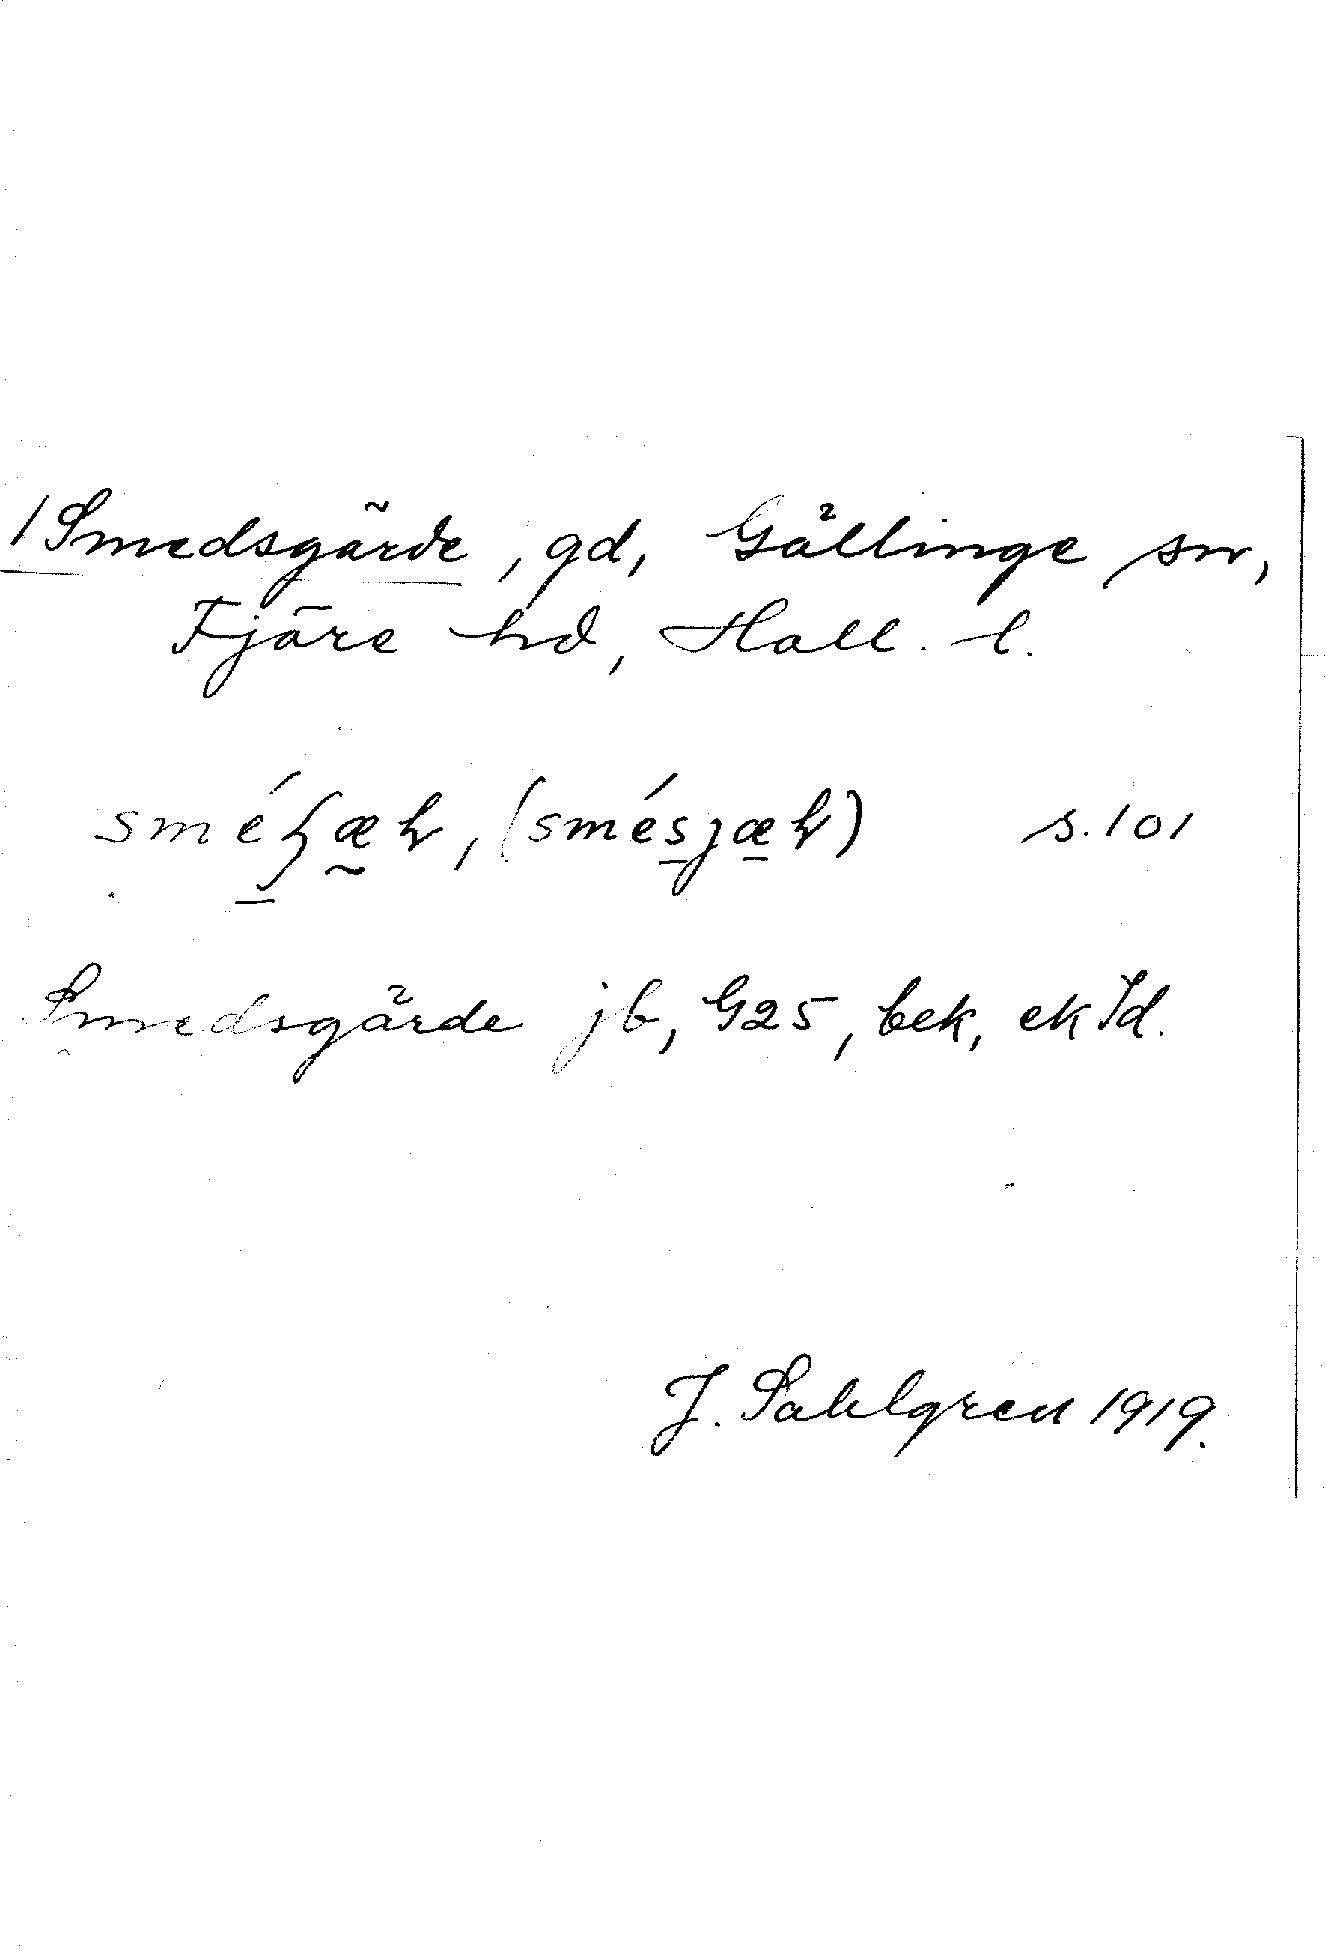 /Smedsgärde, gd, Gällinge sn,
Fjäre hd, Hall. l.
s. 101
Smedsgärde jb, G25, bek, ek Id.
J. Sahlgren 1919.